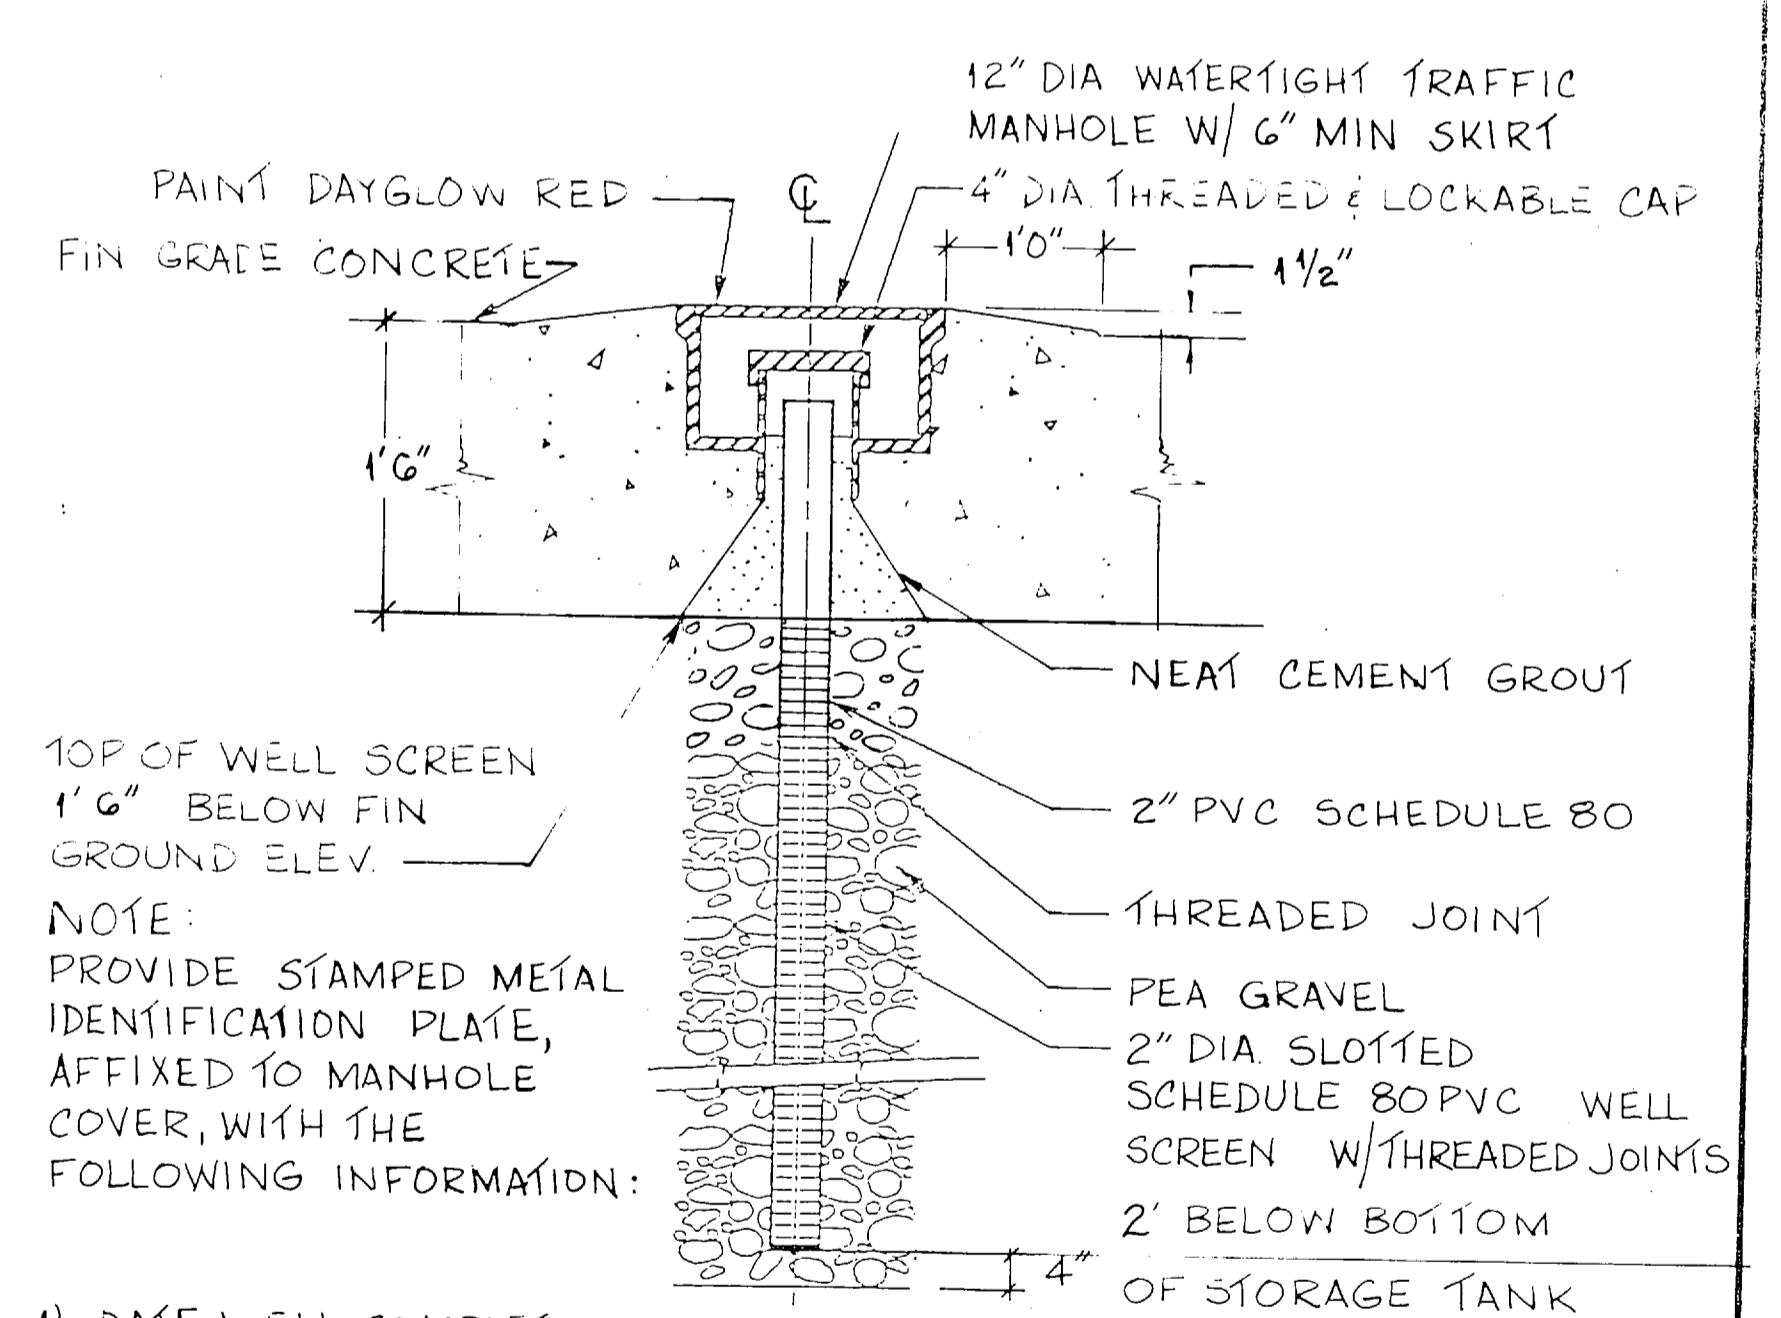 12" DIA WATERTIGHT TRAFFIC
MANHOLE W/ 6" MIN SKIRT
4" DIA. THREADED & LOCKABLE CAP
PAINT DAYGLOW RED
FIN GRADE CONCRETE
℄
1'0"
1 1/2"
1'6"
NEAT CEMENT GROUT
TOP OF WELL SCREEN
1' 6" BELOW FIN
GROUND ELEV.
2" PVC SCHEDULE 80
THREADED JOINT
PEA GRAVEL
2" DIA. SLOTTED
SCHEDULE 80 PVC WELL
SCREEN W/THREADED JOINTS
2' BELOW BOTTOM
OF STORAGE TANK
4"
NOTE:
PROVIDE STAMPED METAL
IDENTIFICATION PLATE,
AFFIXED TO MANHOLE
COVER, WITH THE
FOLLOWING INFORMATION: